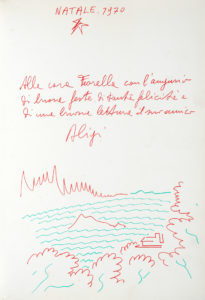 NATALE. 1970
Alla cara Fiorella con l'augurio
di buone feste di tanta felicità e
di una buona lettura, il suo amico
Aligi